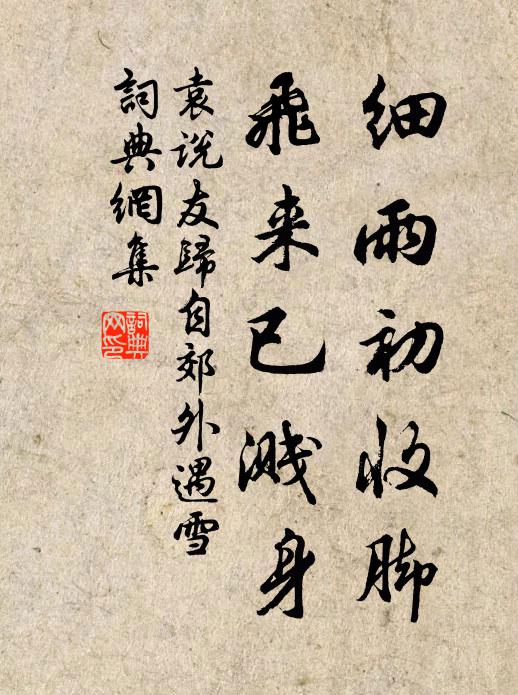 细雨初收脚
飛来已溅身
袁说友歸自郊外遇雪
詞典網集
詞典网印